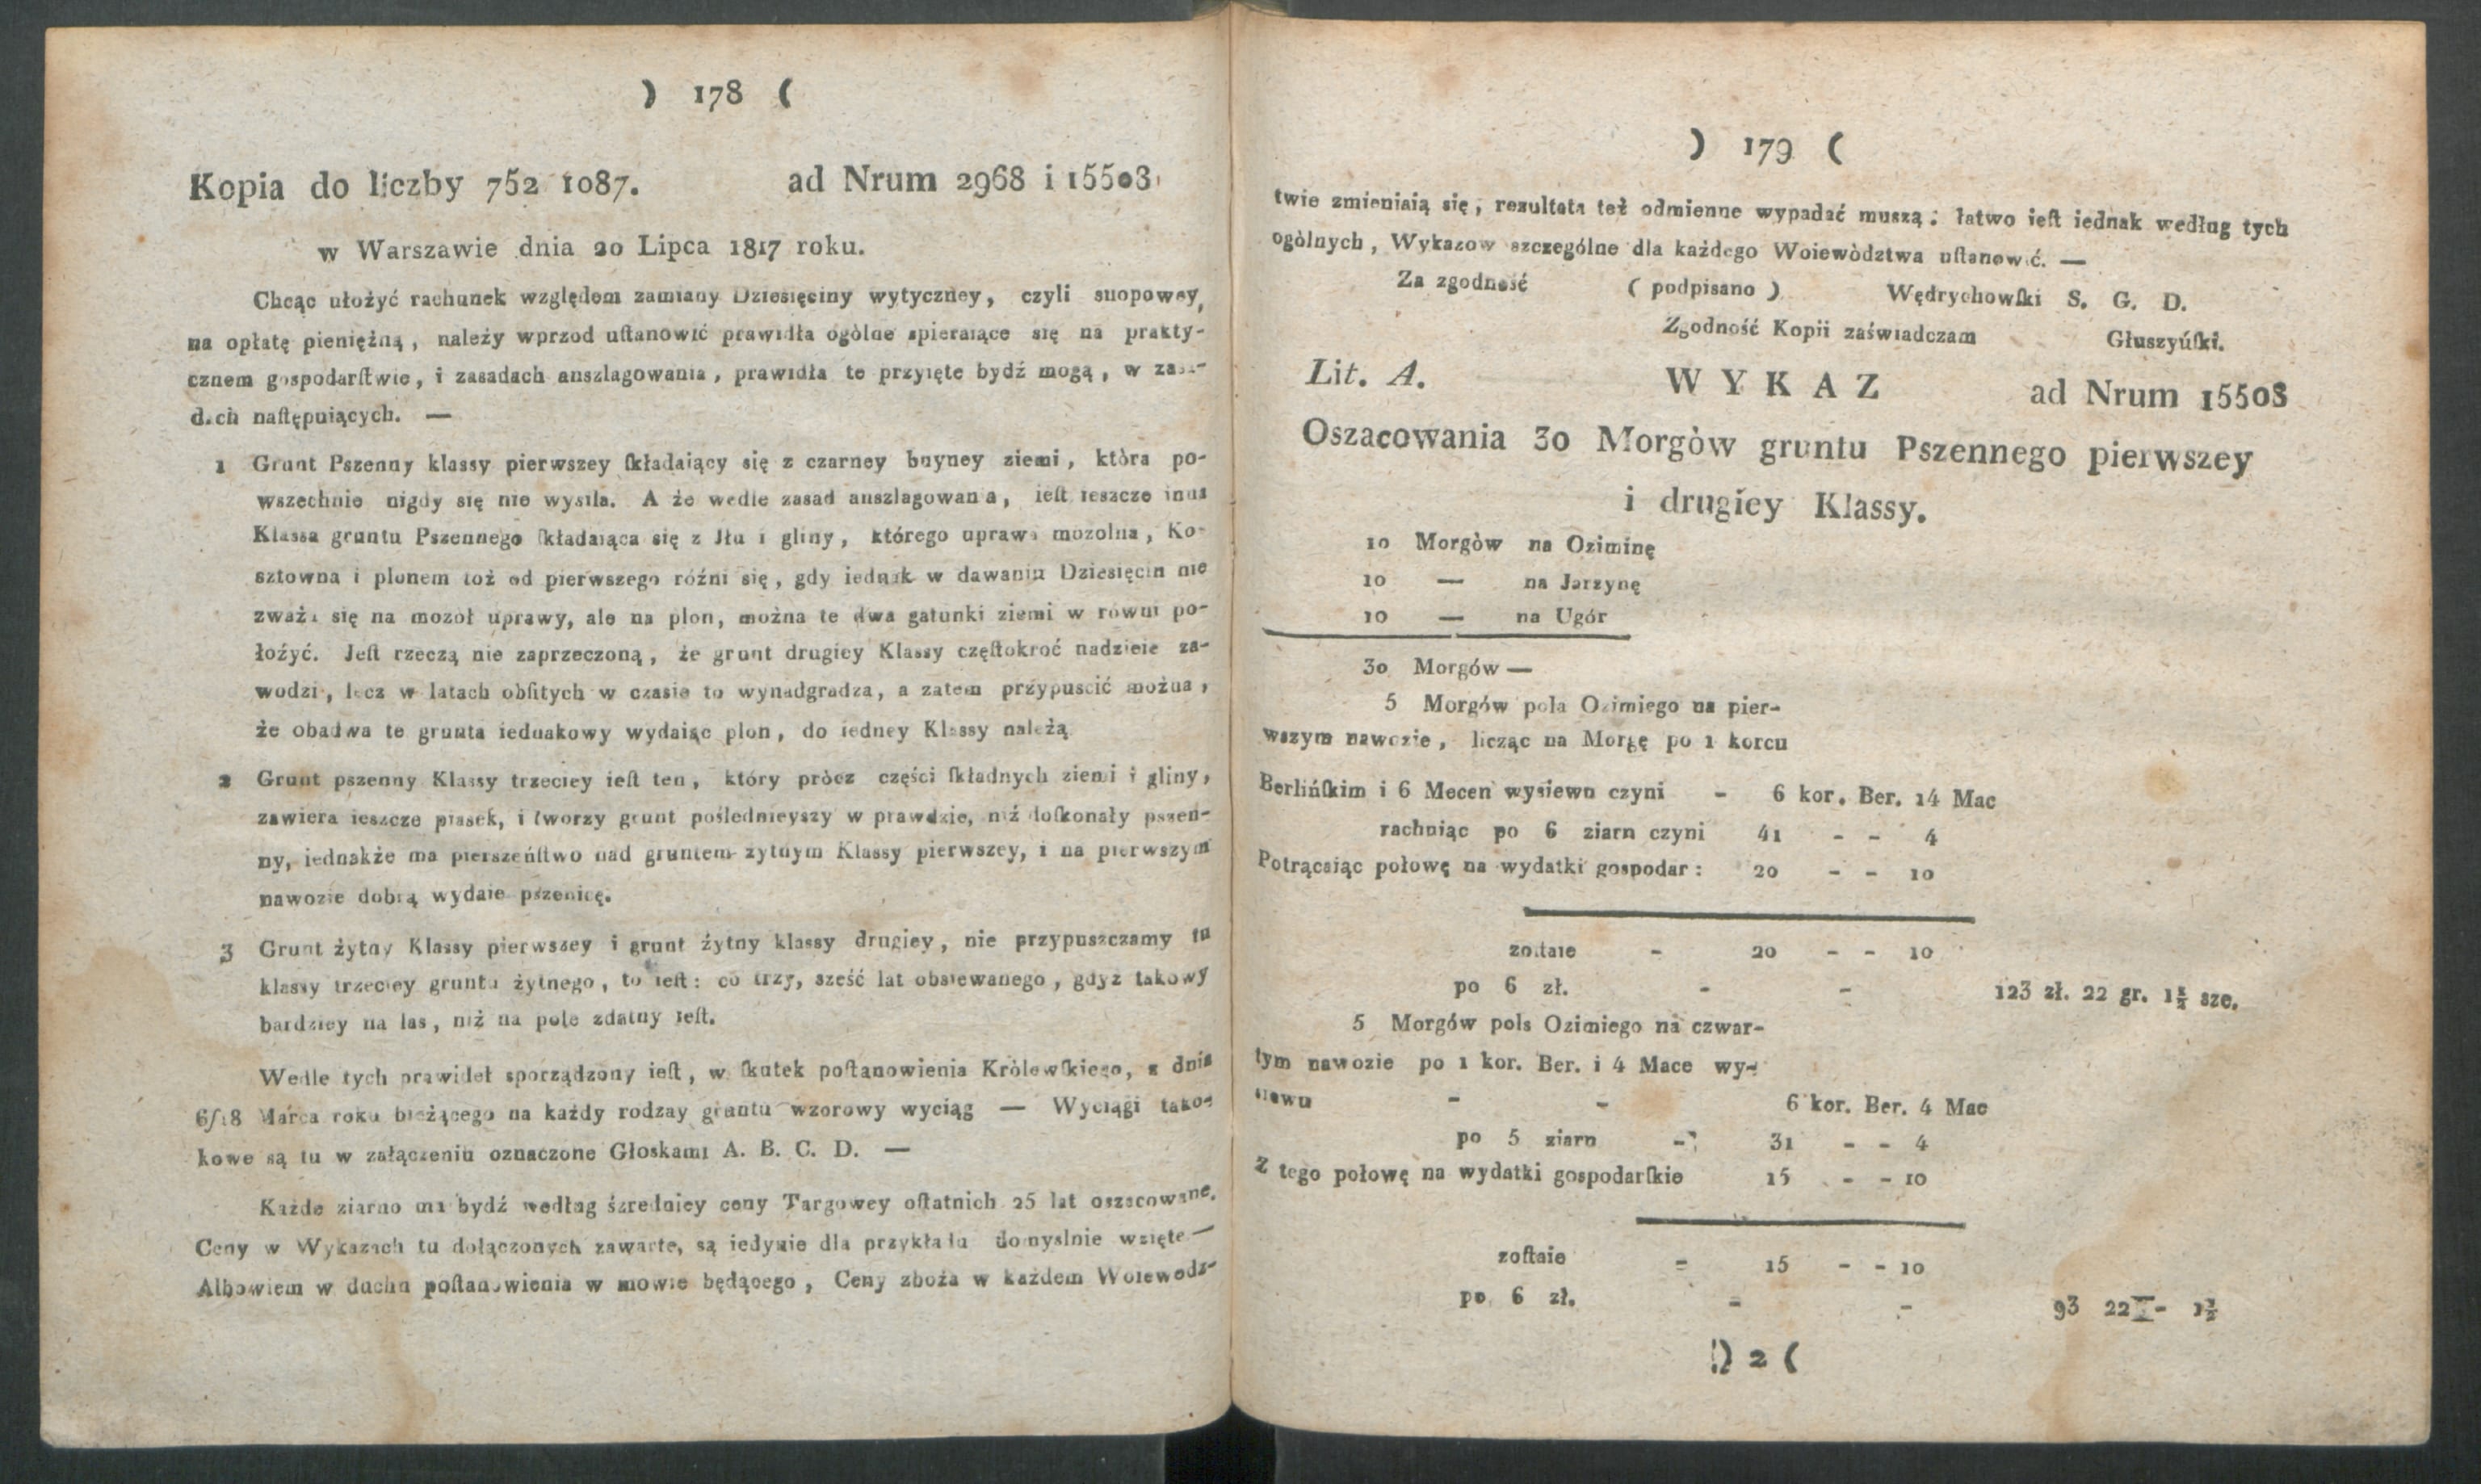 ) 178 (
Kopia do liczby 752 1087. ad Nrum 2968 i 15508
w Warszawie dnia 20 Lipca 1817 roku.
Chcąc ułożyć rachunek względem zamiany Dziesięciny wytyczney, czyli snopowey,
na opłatę pieniężną, należy wprzod uſtanowić prawidła ogòlne spieraiące się na prakty-
cznem gospodarſtwie, i zasadach anszlagowania, prawidła te przyięte bydź mogą, w zasa-
dach naſtępuiących. —
1 Grunt Pszenny klassy pierwszey ſkładaiący się z czarney buyney ziemi, ktòra po-
wszechnie nigdy się nie wysila. A że wedle zasad anszlagowania, ieſt ieszcze inna
Klassa gruntu Pszennego ſkładaiąca się z Jłu i gliny, którego uprawa mozolna, Ko-
sztowna i plonem toż od pierwszego różni się, gdy iednak w dawaniu Dziesięcin nie
zważa się na mozoł uprawy, ale na plon, można te dwa gatunki ziemi w równi po-
łożyć. Jeſt rzeczą nie zaprzeczoną, że grunt drugiey Klassy częſtokroć nadzieie za-
wodzi, lecz w latach obfitych w czasie to wynadgradza, a zatem przypuscić można,
że obadwa te grunta iednakowy wydaiąc plon, do iedney Klassy należą
2 Grunt pszenny Klassy trzeciey ieſt ten, który pròcz części ſkładnych ziemi i gliny,
zawiera ieszcze piasek, i tworzy grunt poślednieyszy w prawdzie, niż doſkonały pszen-
ny, iednakże ma pierszeńſtwo nad gruntem żytnym Klassy pierwszey, i na pierwszym
nawozie dobrą wydaie pszenicę.
3 Grunt żytny Klassy pierwszey i grunt żytny klassy drugiey, nie przypuszczamy tu
klassy trzeciey gruntu żytnego, to ieſt: co trzy, sześć lat obsiewanego, gdyż takowy
bardziey na las, niż na pole zdatny ieſt.
Wedle tych prawideł sporządzony ieſt, w ſkutek poſtanowienia Kròlewſkiego, z dnia
6/18 Marca roku bieżącego na każdy rodzay gruntu wzorowy wyciąg — Wyciągi tako-
kowe są tu w załączeniu oznaczone Głoskami A. B. C. D. —
Każde ziarno ma bydź według śzredniey ceny Targowey oſtatnich 25 lat oszacowane.
Ceny w Wykazach tu dołączonych zawarte, są iedynie dla przykładu domyslnie wzięte —
Albowiem w duchu poſtanowienia w mowie będącego, Ceny zboża w każdem Woiewodz-
) 179 (
twie zmieniaią się, rezultata też odmienne wypadać muszą: łatwo ieſt iednak według tych
ogòlnych, Wykazow szczególne dla każdego Woiewòdztwa uſtanowić. —
Za zgodność ( podpisano ) Wędrychowſki S. G. D.
Zgodność Kopii zaświadczam Głuszyúſki.
Lit. A. WYKAZ ad Nrum 15508
Oszacowania 30 Morgòw gruntu Pszennego pierwszey
i drugiey Klassy.
10 Morgòw na Oziminę
10 — na Jarzynę
10 — na Ugór
30 Morgów —
5 Morgów pola Ozimiego na pier-
wszym nawozie, licząc na Morgę po 1 korcu
Berlińſkim i 6 Mecen wysiewu czyni - 6 kor. Ber. 14 Mac
rachuiąc po 6 ziarn czyni 41 - - 4
Potrącaiąc połowę na wydatki gospodar: 20 - - 10
zostaie - 20 - - 10
po 6 zł. - - 123 zł. 22 gr. 1½ sze.
5 Morgów pola Ozimiego na czwar-
tym nawozie po 1 kor. Ber. i 4 Mace wy-
siewu - - 6 kor. Ber. 4 Mac
po 5 ziarn - 31 - - 4
Z tego połowę na wydatki gospodarſkie 15 - - 10
zoſtaie - 15 - - 10
po 6 zł. - - 93 22 - 1½
) 2 (